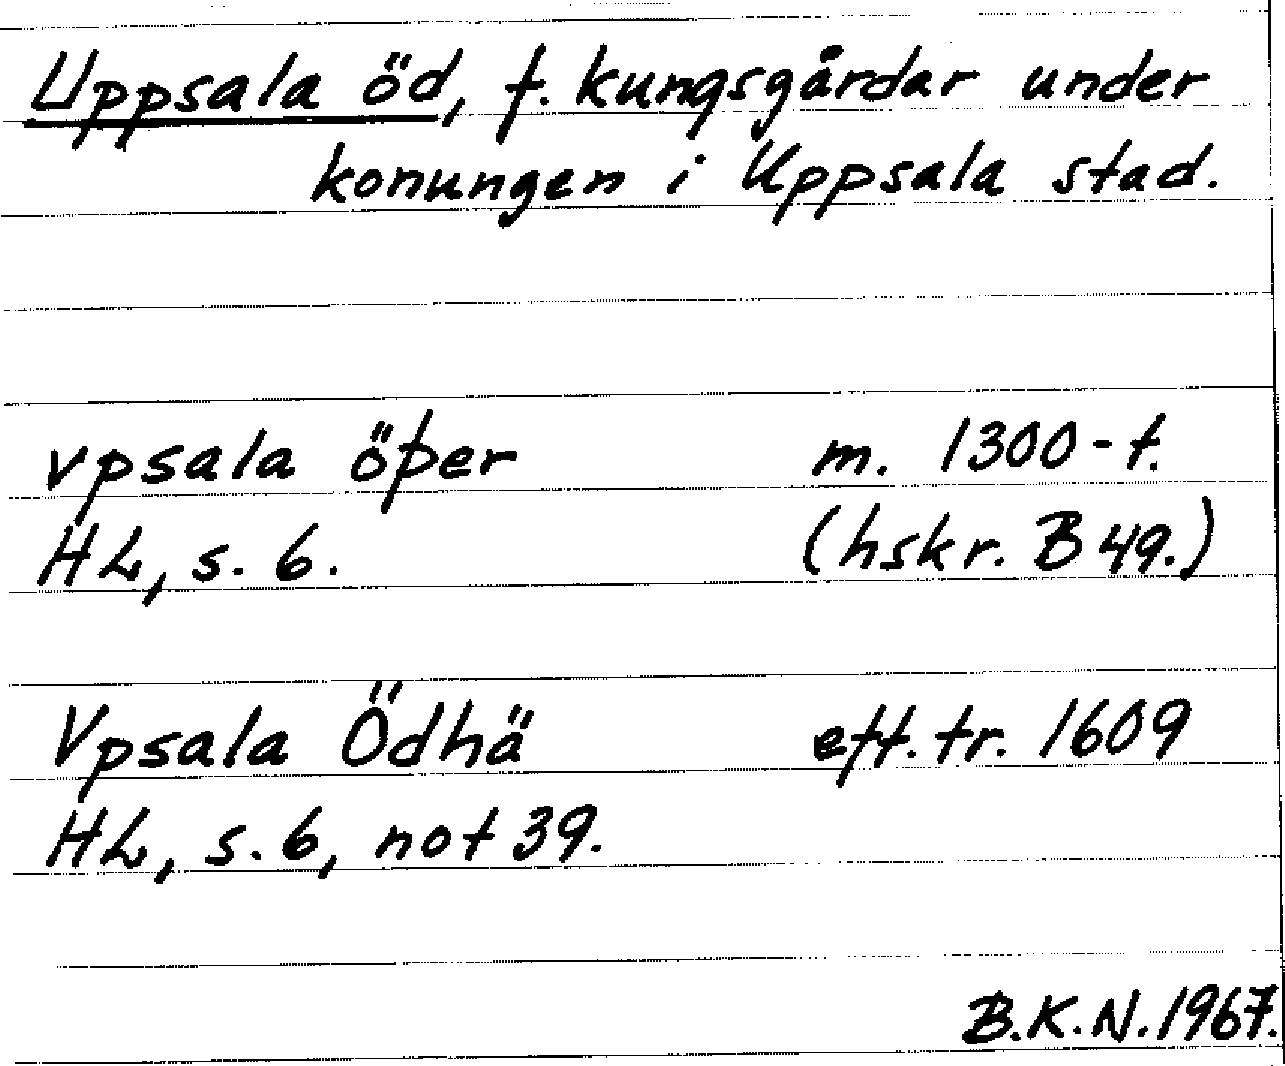 Uppsala öd, f. kungsgårdar under
konungen i Uppsala stad.
vpsala öþer m. 1300-t.
HL, s. 6. (hskr. B 49.)
Vpsala Ödhä eft. tr. 1609
HL, s. 6, not 39.
B.K.N. 1967.